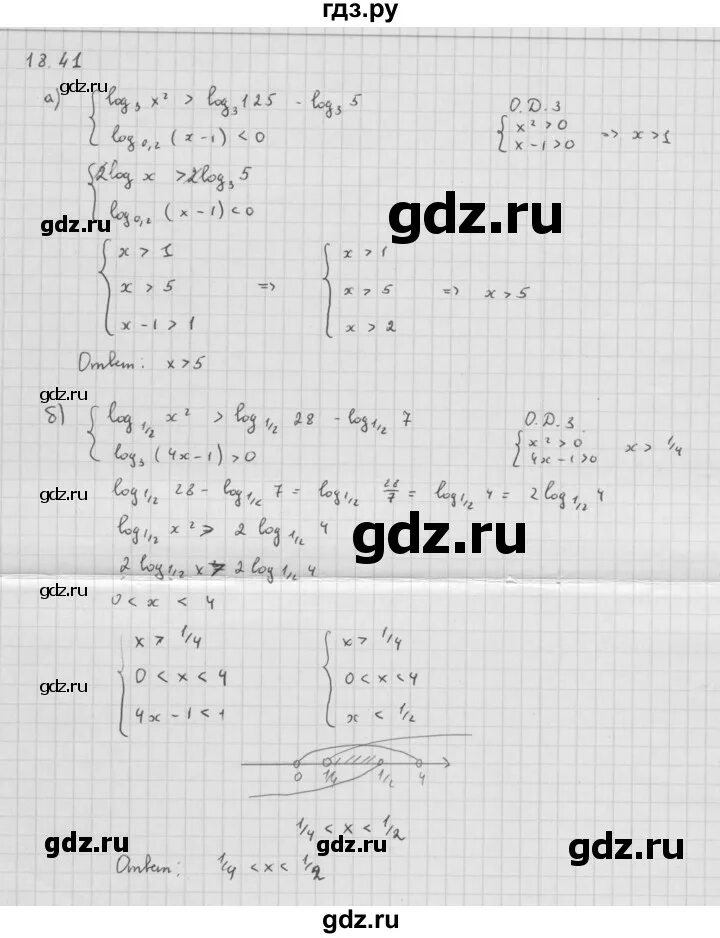 гдз.ру
18.41
gdz.ru
а) { log₃ x² > log₃ 125 - log₃ 5
log₀,₂ (x-1) < 0
О.Д.З
{ x² > 0
x-1 > 0 => x > 1
{ 2log x > 2log₃ 5
log₀,₂ (x-1) < 0
gdz.ru
gdz.ru
{ x > 1
x > 5
x-1 > 1
=>
{ x > 1
x > 5
x > 2
=> x > 5
Ответ: x > 5
gdz.ru
б) { log₁/₂ x² > log₁/₂ 28 - log₁/₂ 7
log₃ (4x-1) > 0
О.Д.З.
{ x² > 0
4x-1 > 0
x > 1/4
gdz.ru
log₁/₂ 28 - log₁/₂ 7 = log₁/₂ 28/7 = log₁/₂ 4 = 2 log₁/₂ 4
log₁/₂ x² > 2 log₁/₂ 4
gdz.ru
2 log₁/₂ x > 2 log₁/₂ 4
gdz.ru
0 < x < 4
{ x > 1/4
0 < x < 4
4x-1 < 1
{ x > 1/4
0 < x < 4
x < 1/2
gdz.ru
0 1/4 1/2 4
1/4 < x < 1/2
gdz.ru
gdz.ru
Ответ: 1/4 < x < 1/2
gdz.ru